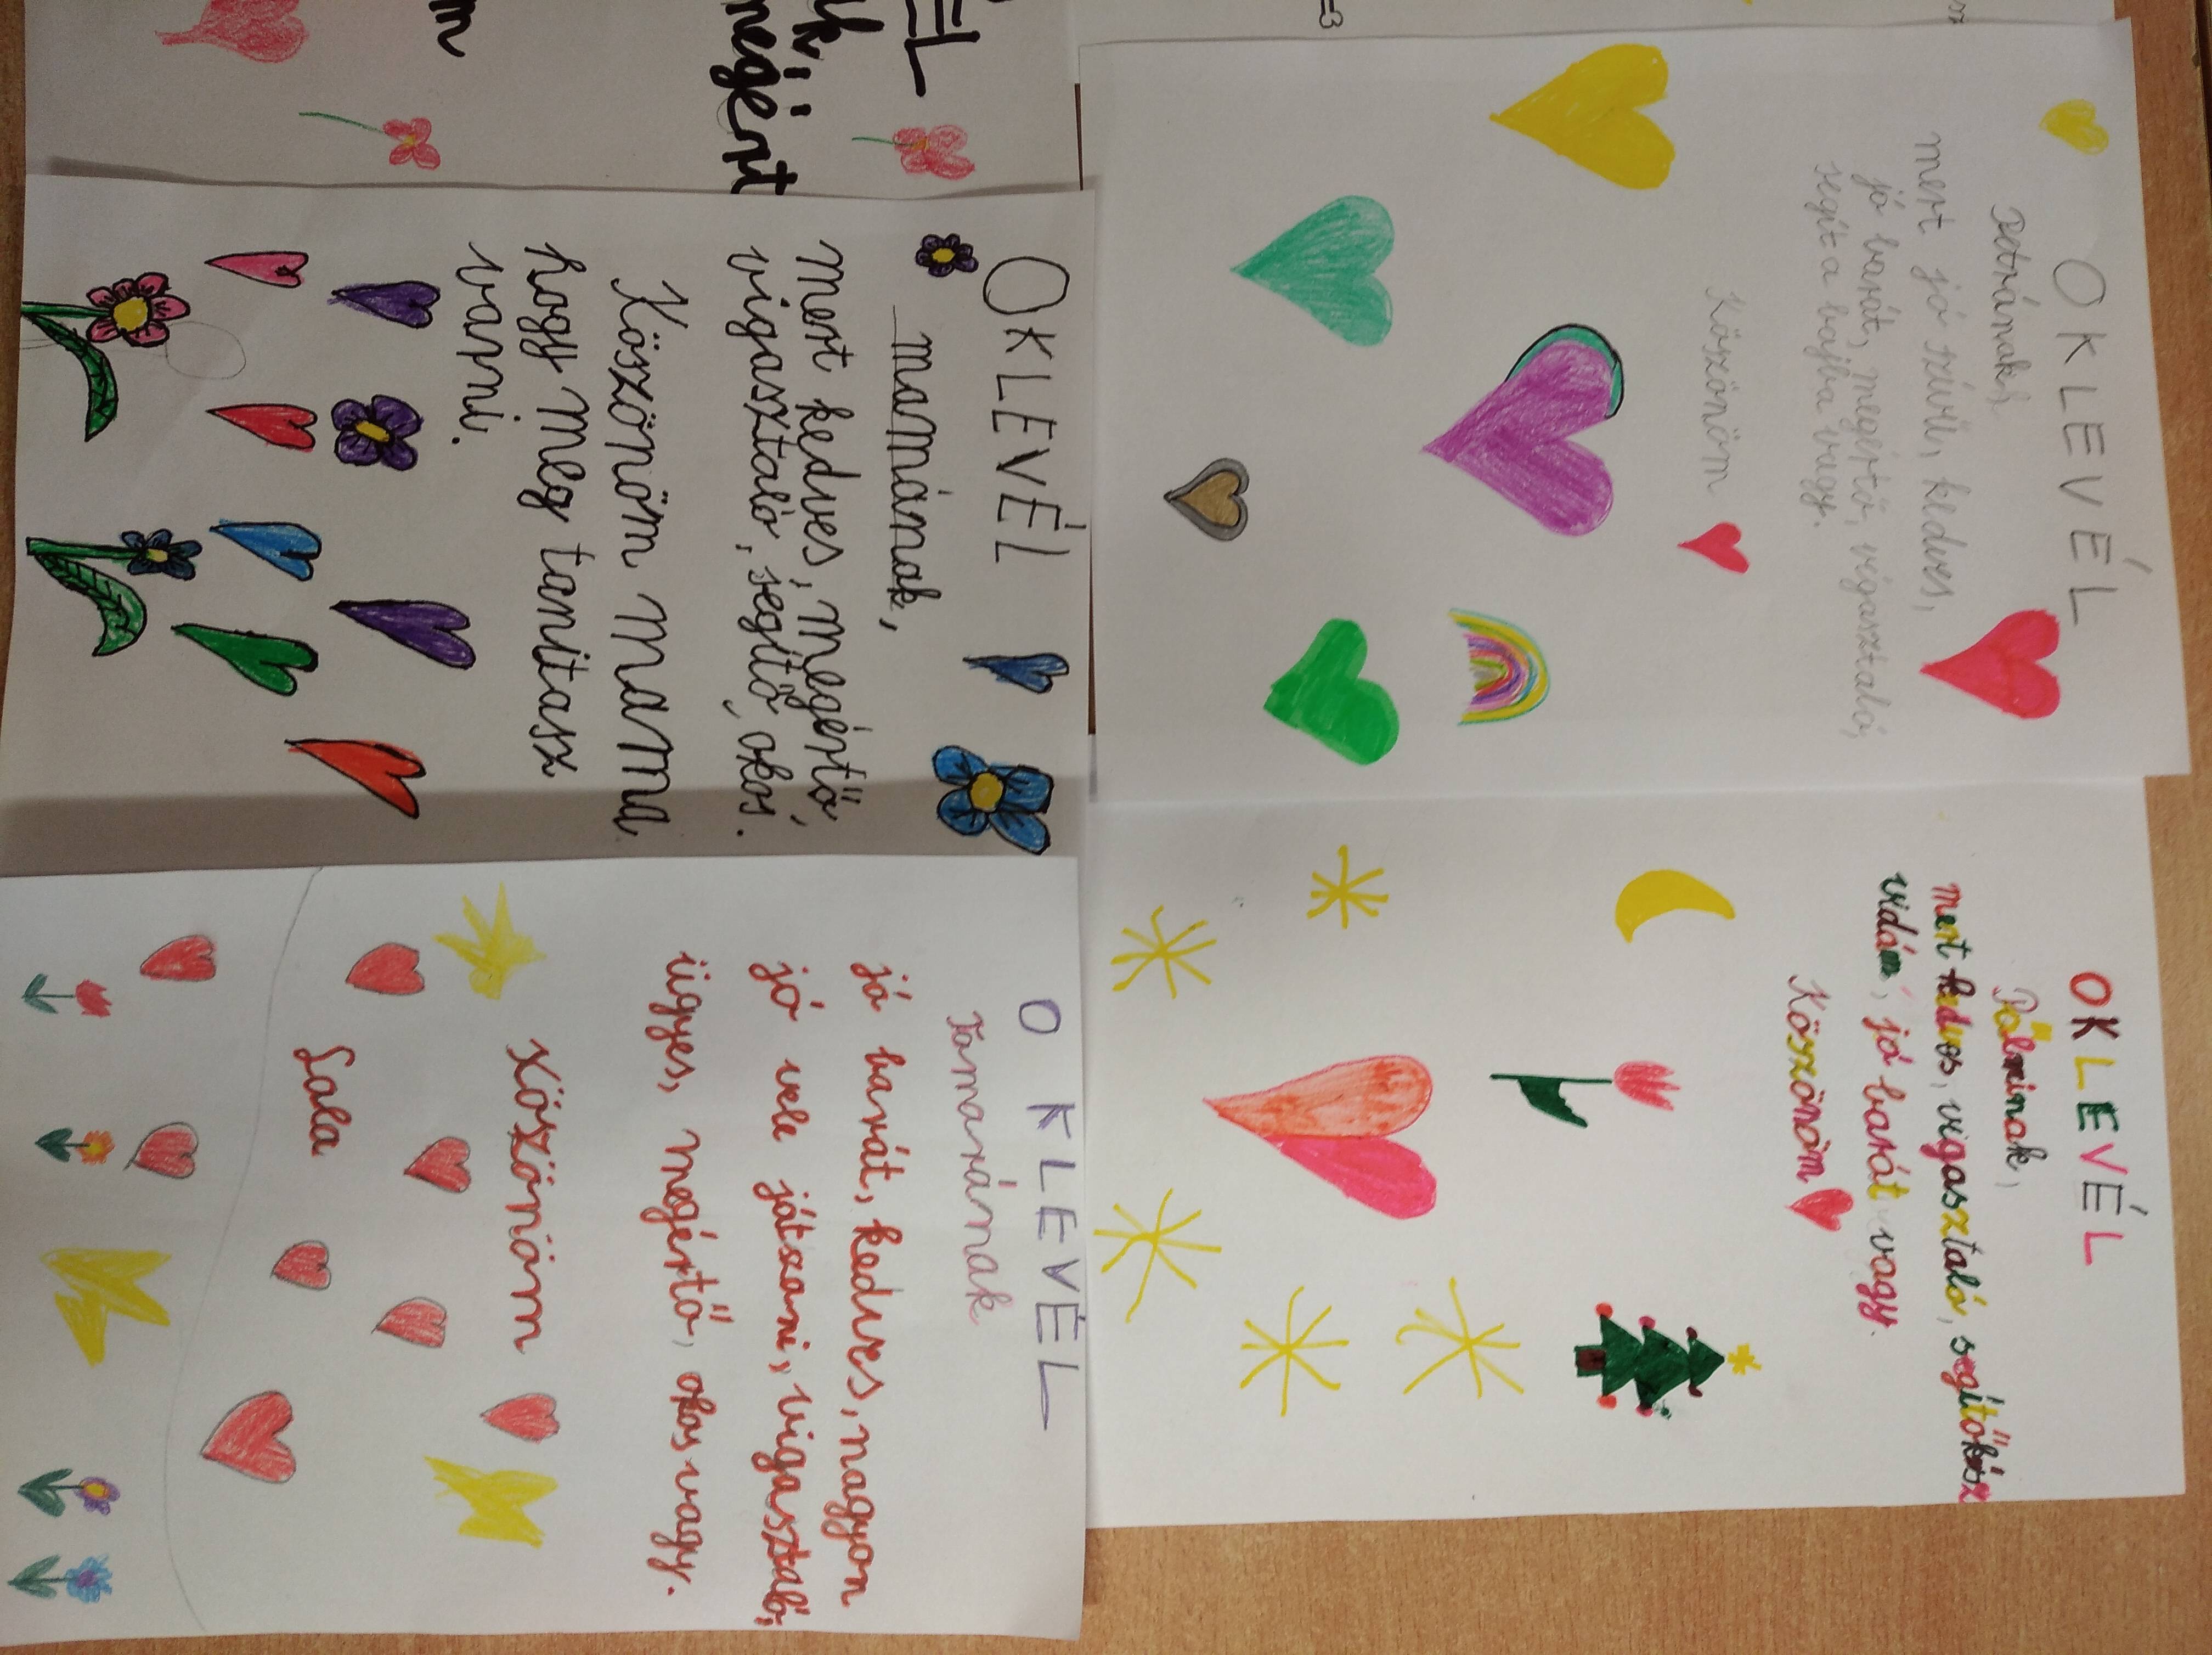 OKLEVÉL
Petrának
mert jó szívű, kedves,
jó barát, megértő, vigasztaló,
segít a bajba vagy.
Köszönöm
OKLEVÉL
Pálninak,
mert kedves, vigasztaló, segítőkész
vidám, jó barát vagy.
Köszönöm
ÉL
megért
OKLEVÉL
mamának,
mert kedves, megértő,
vigasztaló, segítő, okos.
Köszönöm mama
hogy meg tanitasz
varrni.
OKLEVÉL
Tamarának
jó barát, kedves, nagyon
jó vele játszani, vigasztaló,
ügyes, megértő, okos vagy.
Köszönöm
Lala